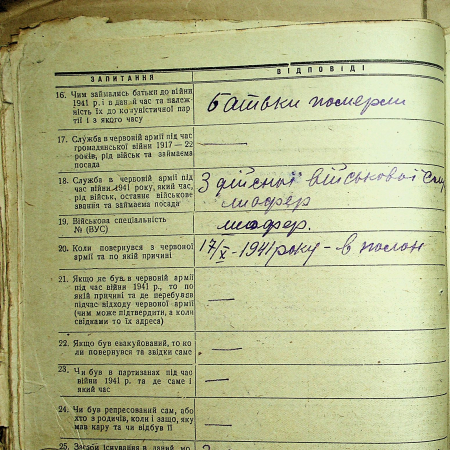 ЗАПИТАННЯ
ВІДПОВІДІ
16. Чим займались батьки до війни
1941 р. і в даний час та належ-
ність їх до комуністичної пар-
тії і з якого часу
Батьки померли
17. Служба в червоній армії під час
громадянської війни 1917 — 22
років, рід військ та займаєма
посада
—
18. Служба в червоній армії під
час війни 1941 року, який час,
рід військ, останнє військове
звання та займаєма посада
З дійсної військової
шофер
19. Військова спеціальність
№ (ВУС)
шофер.
20. Коли повернувся з червоної
армії та по якій причині
17/X - 1941 року - в полон
21. Якщо не був в червоній армії
під час війни 1941 р., то по
якій причині та де перебував
підчас відходу червоної армії
(чим може підтвердити, а коли
свідками то їх адреса)
—
22. Якщо був евакуйований, то ко-
ли повернувся та звідки саме
—
23. Чи був в партизанах під час
війни 1941 р. та де саме і
який час
—
24. Чи був репресований сам, або
хто з родичів, коли і защо, яку
мав кару та чи відбув її
—
25. Засоби існування в даний мо-